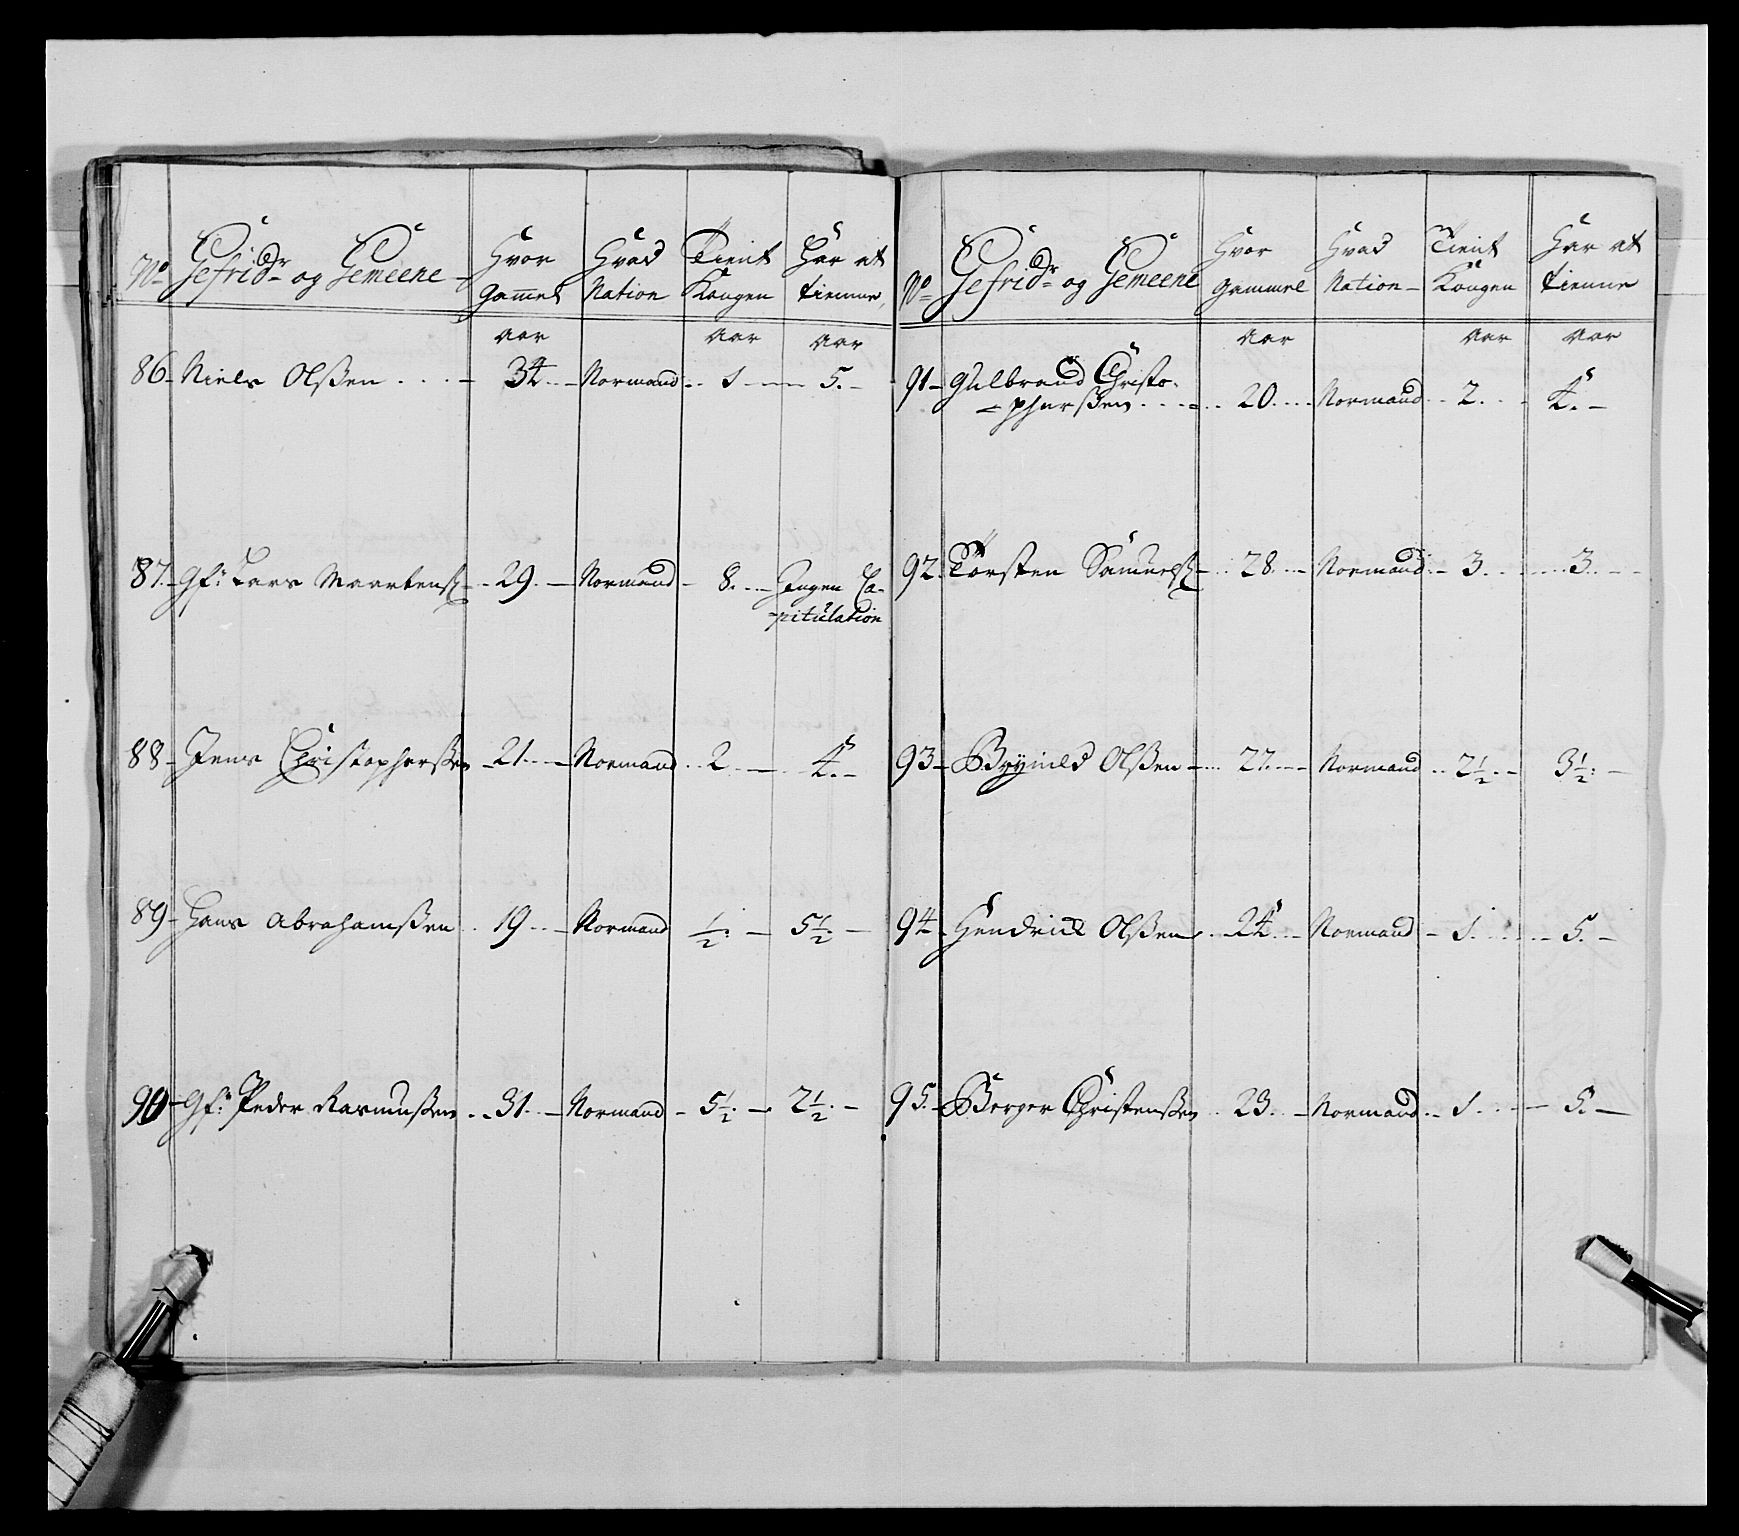 No Gefridr og Gemeene Hvor Hvad Tient Har at
gamel Nation Kongen tienne
aar aar aar
86 Niels Olßen .... 34 .. Normand .. 1 5.
87. Gf: Lars Maartens .. 29. Normand 8. .. Ingen Ca-
pitulation
88 Jens Christopherßen 21 ... Normand .. 2 4.
89 Hans Abrahamßen .. 19 .. Normand ½. 5½.
90 Gf: Peder Rasmusßen .. 31. Normand 5½. 2½.
No Gefridr og Gemeene Hvor Hvad Tient Har at
gammel Nation Kongen tienne
aar aar aar
91 Gulbrand Christo-
pherßen .... 20 .... Normand .. 2. 4.
92. Torsten Samuels .. 28 .. Normand 3. ... 3.
93 Brynild Olßen ... 27. Normand .. 2½. 3½.
94 Hendrick Olßen .. 24 .. Normand 1. ... 5.
95. Berger Christenßen .. 23 .. Normand .. 1. ... 5.